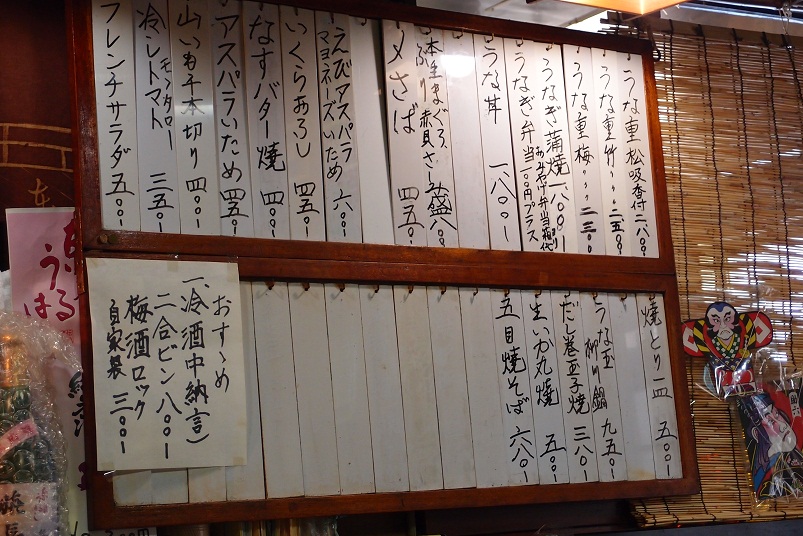 うな重 松 吸香付 二八〇〇
うな重 竹 〃 二五〇〇
うな重 梅 〃 二三〇〇
うなぎ蒲焼 一八〇〇
うなぎ弁当
おみやげ弁当箱代
一〇〇円プラス
うな丼 一八〇〇
本生まぐろ、
ぶり 赤貝さしみ盛
〆さば 四五〇
えびアスパラ
マヨネーズいため 六〇〇
いくらおろし 五〇〇
なすバター焼 四〇〇
アスパラいため 四五〇
山いも千本切り 四〇〇
冷しトマト 三五〇
フレンチサラダ 五〇〇
焼とり一皿 五〇〇
うな玉 柳川鍋 九五〇
だし巻玉子焼 三八〇
生いか丸焼 五〇〇
五目焼そば 六八〇
おすゝめ
一、冷酒中納言)
二合ビン 八〇〇
梅酒ロック
自家製 三〇〇
うるは